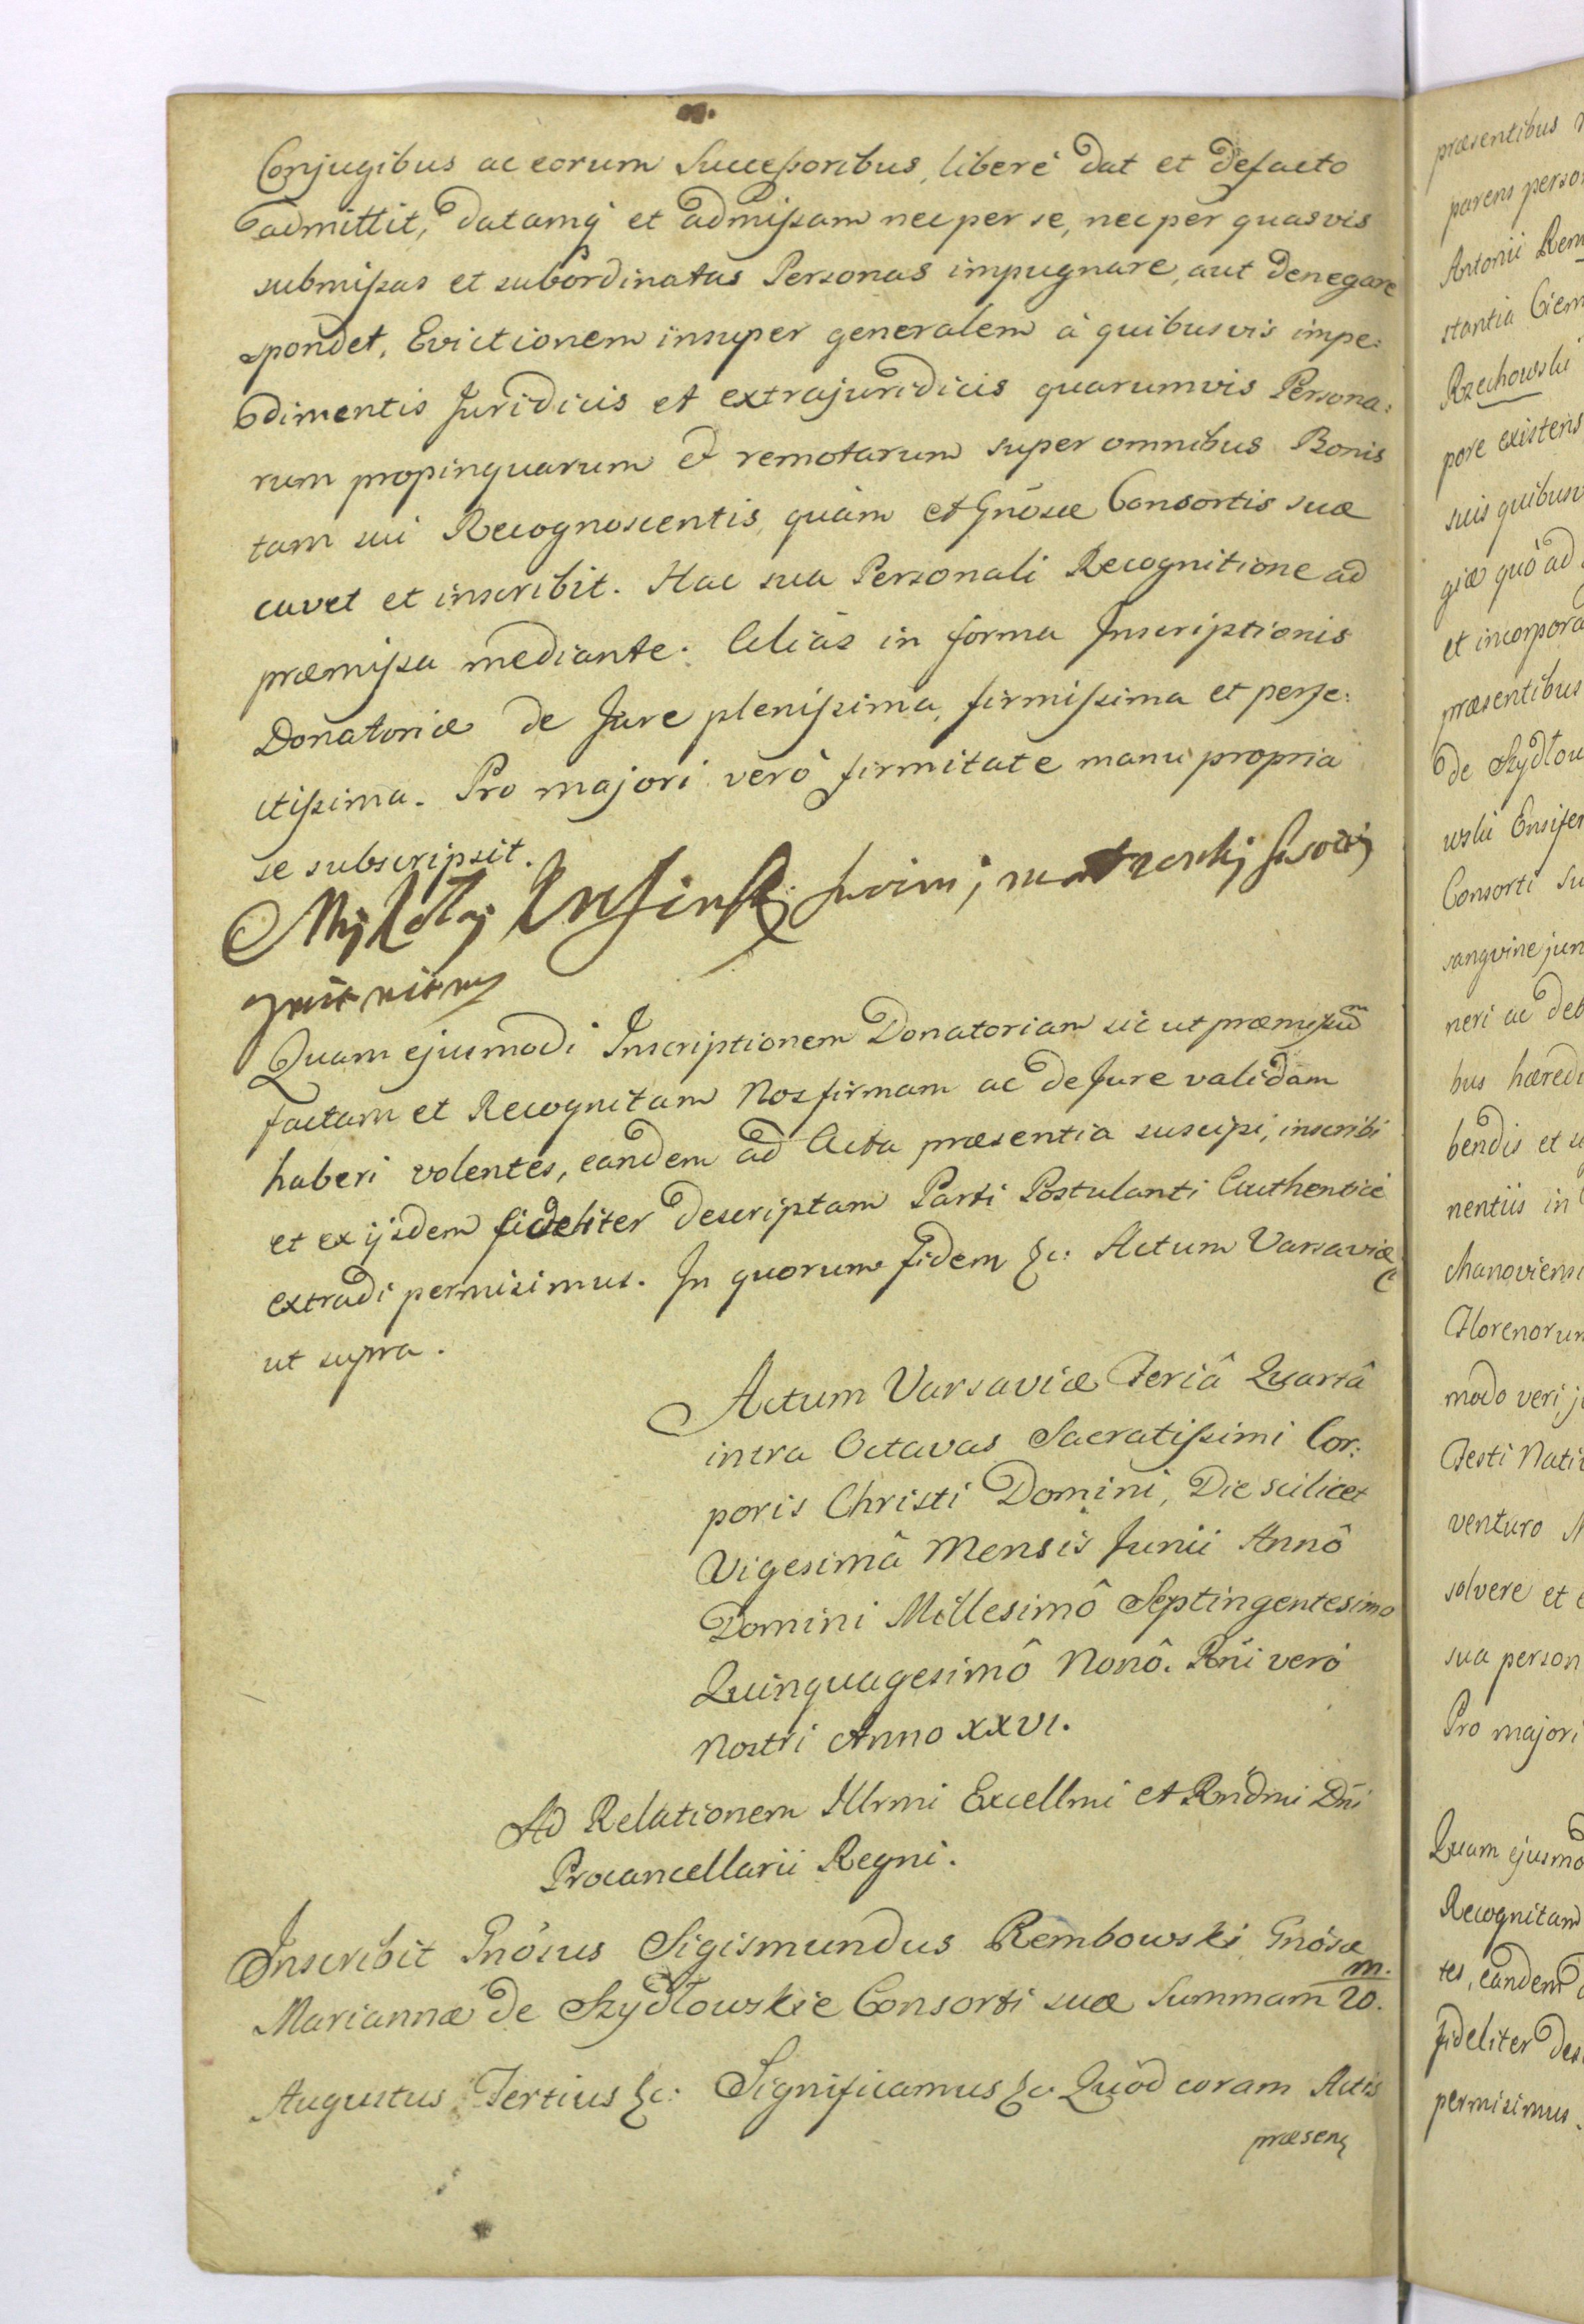 Conjugibus ac eorum Successoribus, liberè dat et defacto
admittit, datamq́ et admissam nec per se, nec per quasvis
submissas et subordinatas Personas impugnare, aut denegare
spondet, Evictionem insuper generalem à quibusvis impe:
dimentis Juridicis et extrajuridicis quarumvis Persona:
rum propinquarum & remotarum super omnibus Bonis
tam sui Recognoscentis, quàm et Gnósæ Consortis suæ
cavet et inscribit. Hac sua Personali Recognitione ad
præmissa mediante. Aliàs in forma Inscriptionis
Donatoriæ de Jure plenissima, firmissima et perfe:
ctissima. Pro majori verò firmitate manu propria
se subscripsit.
Mykołay
Quam ejusmodi Inscriptionem Donatoriam sic ut præmissũ
factam et Recognitam Nos firmam ac de Jure validam
haberi volentes, eandem ad Acta præsentia suscipi, inscribi
et ex ijsdem fideliter descriptam Parti Postulanti Authenticè
extradi permisimus. In quorum fidem &c: Actum Varsaviæ
ut supra.
Actum Varsaviæ Feriâ Quartâ
intra Octavas Sacratissimi Cor:
poris Christi Domini, Die scilicet
Vigesimâ Mensis Junii Annô
Domini Millesimô Septingentesimo
Quinquagesimô Nonô. Rñi verò
Nostri Anno XXVI.
Ad Relationem Illrmi Excellmi et Rñdmi Dñi
Procancellarii Regni.
Inscribit Gnósus Sigismundus Rembowski Gnósæ
Mariannæ de Szydłowskie Consorti suæ Summam m. 20.
Augustus Tertius &c: Significamus &c Quòd coram Actis
præsen
præsentibus
parens perso
Antonii Rem
stantia Ciem
Rzechowski
pore existens
suis quibusv
giæ quò ad
et incorpora
præsentibus
de Szydłow
wski Ensifer
Consorti su
sangvine jun
neri ac deb
bus hæredi
bendis et
nentiis in
chanoviensi
Florenorum
modo veri j
Festi Nati
venturo
solvere et
sua person
Pro majori
Quam ejusmo
Recognitam
tes, eandem
fideliter des
permisimus.